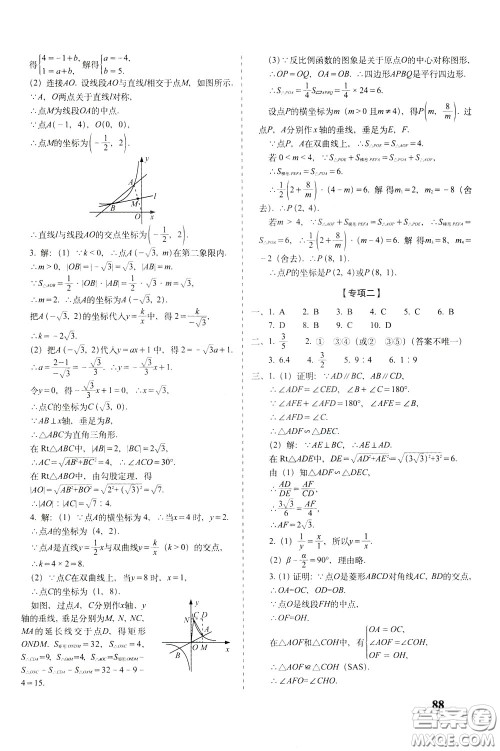 得{4=-1+b, 1=a+b, 解得{a=-4, b=5.
(2)连接AO. 设线段AO与直线l相交于点M, 如图所示.
∵A, O两点关于直线l对称,
∴点M为线段OA的中点.
∵点A(-1, 4), O(0, 0),
∴点M的坐标为(-1/2, 2).
y
A
B
M
O
x
∴直线l与线段AO的交点坐标为(-1/2, 2).
3. 解:(1)∵k<0, ∴点A(-√3, m)在第二象限内.
∴m>0, |OB|=|-√3|=√3, |AB|=m.
∵S△AOB=1/2·|OB|·|AB|=1/2·√3·m=√3,
∴m=2. ∴点A的坐标为A(-√3, 2).
把A(-√3, 2)的坐标代入y=k/x中, 得2=k/-√3,
∴k=-2√3.
(2)把A(-√3, 2)代入y=ax+1中, 得2=-√3a+1.
∴a=2-1/-√3=-√3/3, ∴y=-√3/3x+1.
令y=0, 得-√3/3x+1=0, ∴x=√3.
∴点C的坐标为C(√3, 0).
∵AB⊥x轴于点B,
∴△ABC为直角三角形.
在Rt△ABC中, |AB|=2, |BC|=2√3,
∴AC=√AB²+BC²=4, ∴∠ACO=30°.
在Rt△ABO中, 由勾股定理, 得
|AO|=√AB²+BO²=√2²+(√3)²=√7.
∴|AO|∶|AC|=√7∶4.
4. 解:(1)∵点A的横坐标为4, ∴当x=4时, y=2.
∴点A的坐标为(4, 2).
∵点A是直线y=1/2x与双曲线y=k/x(k>0)的交点,
∴k=4×2=8.
(2)∵点C在双曲线上, 当y=8时, x=1,
∴点C的坐标为(1, 8).
如图, 过点A, C分别作x轴, y轴的垂线, 垂足分别为M, N, NC, MA的延长线交于点D, 得矩形ONDM. ∵S矩形ONDM=32, S△ONC=4, S△CDA=9, S△OAM=4, ∴S△AOC=S矩形ONDM-S△ONC-S△CDA-S△OAM=32-4-9-4=15.
y
N
C
D
A
O
M
x
(3)∵反比例函数的图象是关于原点O的中心对称图形,
∴OP=OQ, OA=OB. ∴四边形APBQ是平行四边形.
∴S△POA=1/4S平行四边形APBQ=1/4×24=6.
设点P的横坐标为m(m>0且m≠4), 得P(m, 8/m). 过点P, A分别作x轴的垂线, 垂足为E, F.
∵点P, A在双曲线上, ∴S△POE=S△AOF=4.
若0<m<4, ∵S△POE+S梯形PEFA=S△POA+S△AOF,
∴S梯形PEFA=S△POA=6.
∴1/2(2+8/m)·(4-m)=6. 解得m₁=2, m₂=-8(舍去). ∴P(2, 4).
若m>4, ∵S△AOF+S梯形PEFA=S△POA+S△POE, ∴S梯形PEFA=S△POA=6, ∴1/2(2+8/m)·(m-4)=6. 解得m₁=8, m₂=-2(舍去). ∴P(8, 1).
∴点P的坐标是P(2, 4)或P(8, 1).
【专项二】
一、1. A 2. B 3. B 4. A 5. C 6. C
7. D 8. B 9. C 10. D
二、1. 3/5 2. ① ③④(或② ③⑤)(答案不唯一)
3. 6.4 4. 3/2 5. 9∶4 6. 1∶9
三、1. (1)证明:∵AD∥BC, AB∥CD,
∴∠ADF=∠CED, ∠B+∠C=180°.
∵∠AFE+∠AFD=180°, ∠AFE=∠B,
∴∠AFD=∠C.
∴△ADF∽△DEC.
(2)解:∵AE⊥BC, ∴AE⊥AD.
在Rt△ADE中, DE=√AD²+AE²=√(3√3)²+3²=6.
由(1)知△ADF∽△DEC,
∴AD/DE=AF/CD.
∴3√3/6=AF/4,
∴AF=2√3.
2. (1)1/y=x/1, 所以y=1/x.
(2)β-α/2=90°, 理由略.
3. (1)证明:∵点O是菱形ABCD对角线AC, BD的交点,
∴OA=OC, OD=OB.
∵点O是线段FH的中点,
∴OF=OH.
在△AOF和△COH中, 有{OA=OC, ∠AOF=∠COH, OF=OH,
∴△AOF≌△COH(SAS).
∴∠AFO=∠CHO.
88